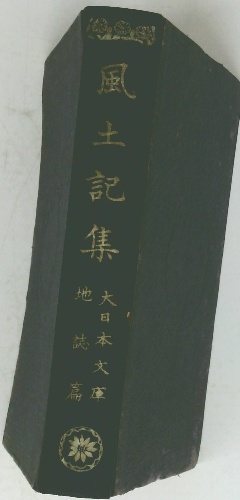 風土記集
大日本文庫
地誌篇